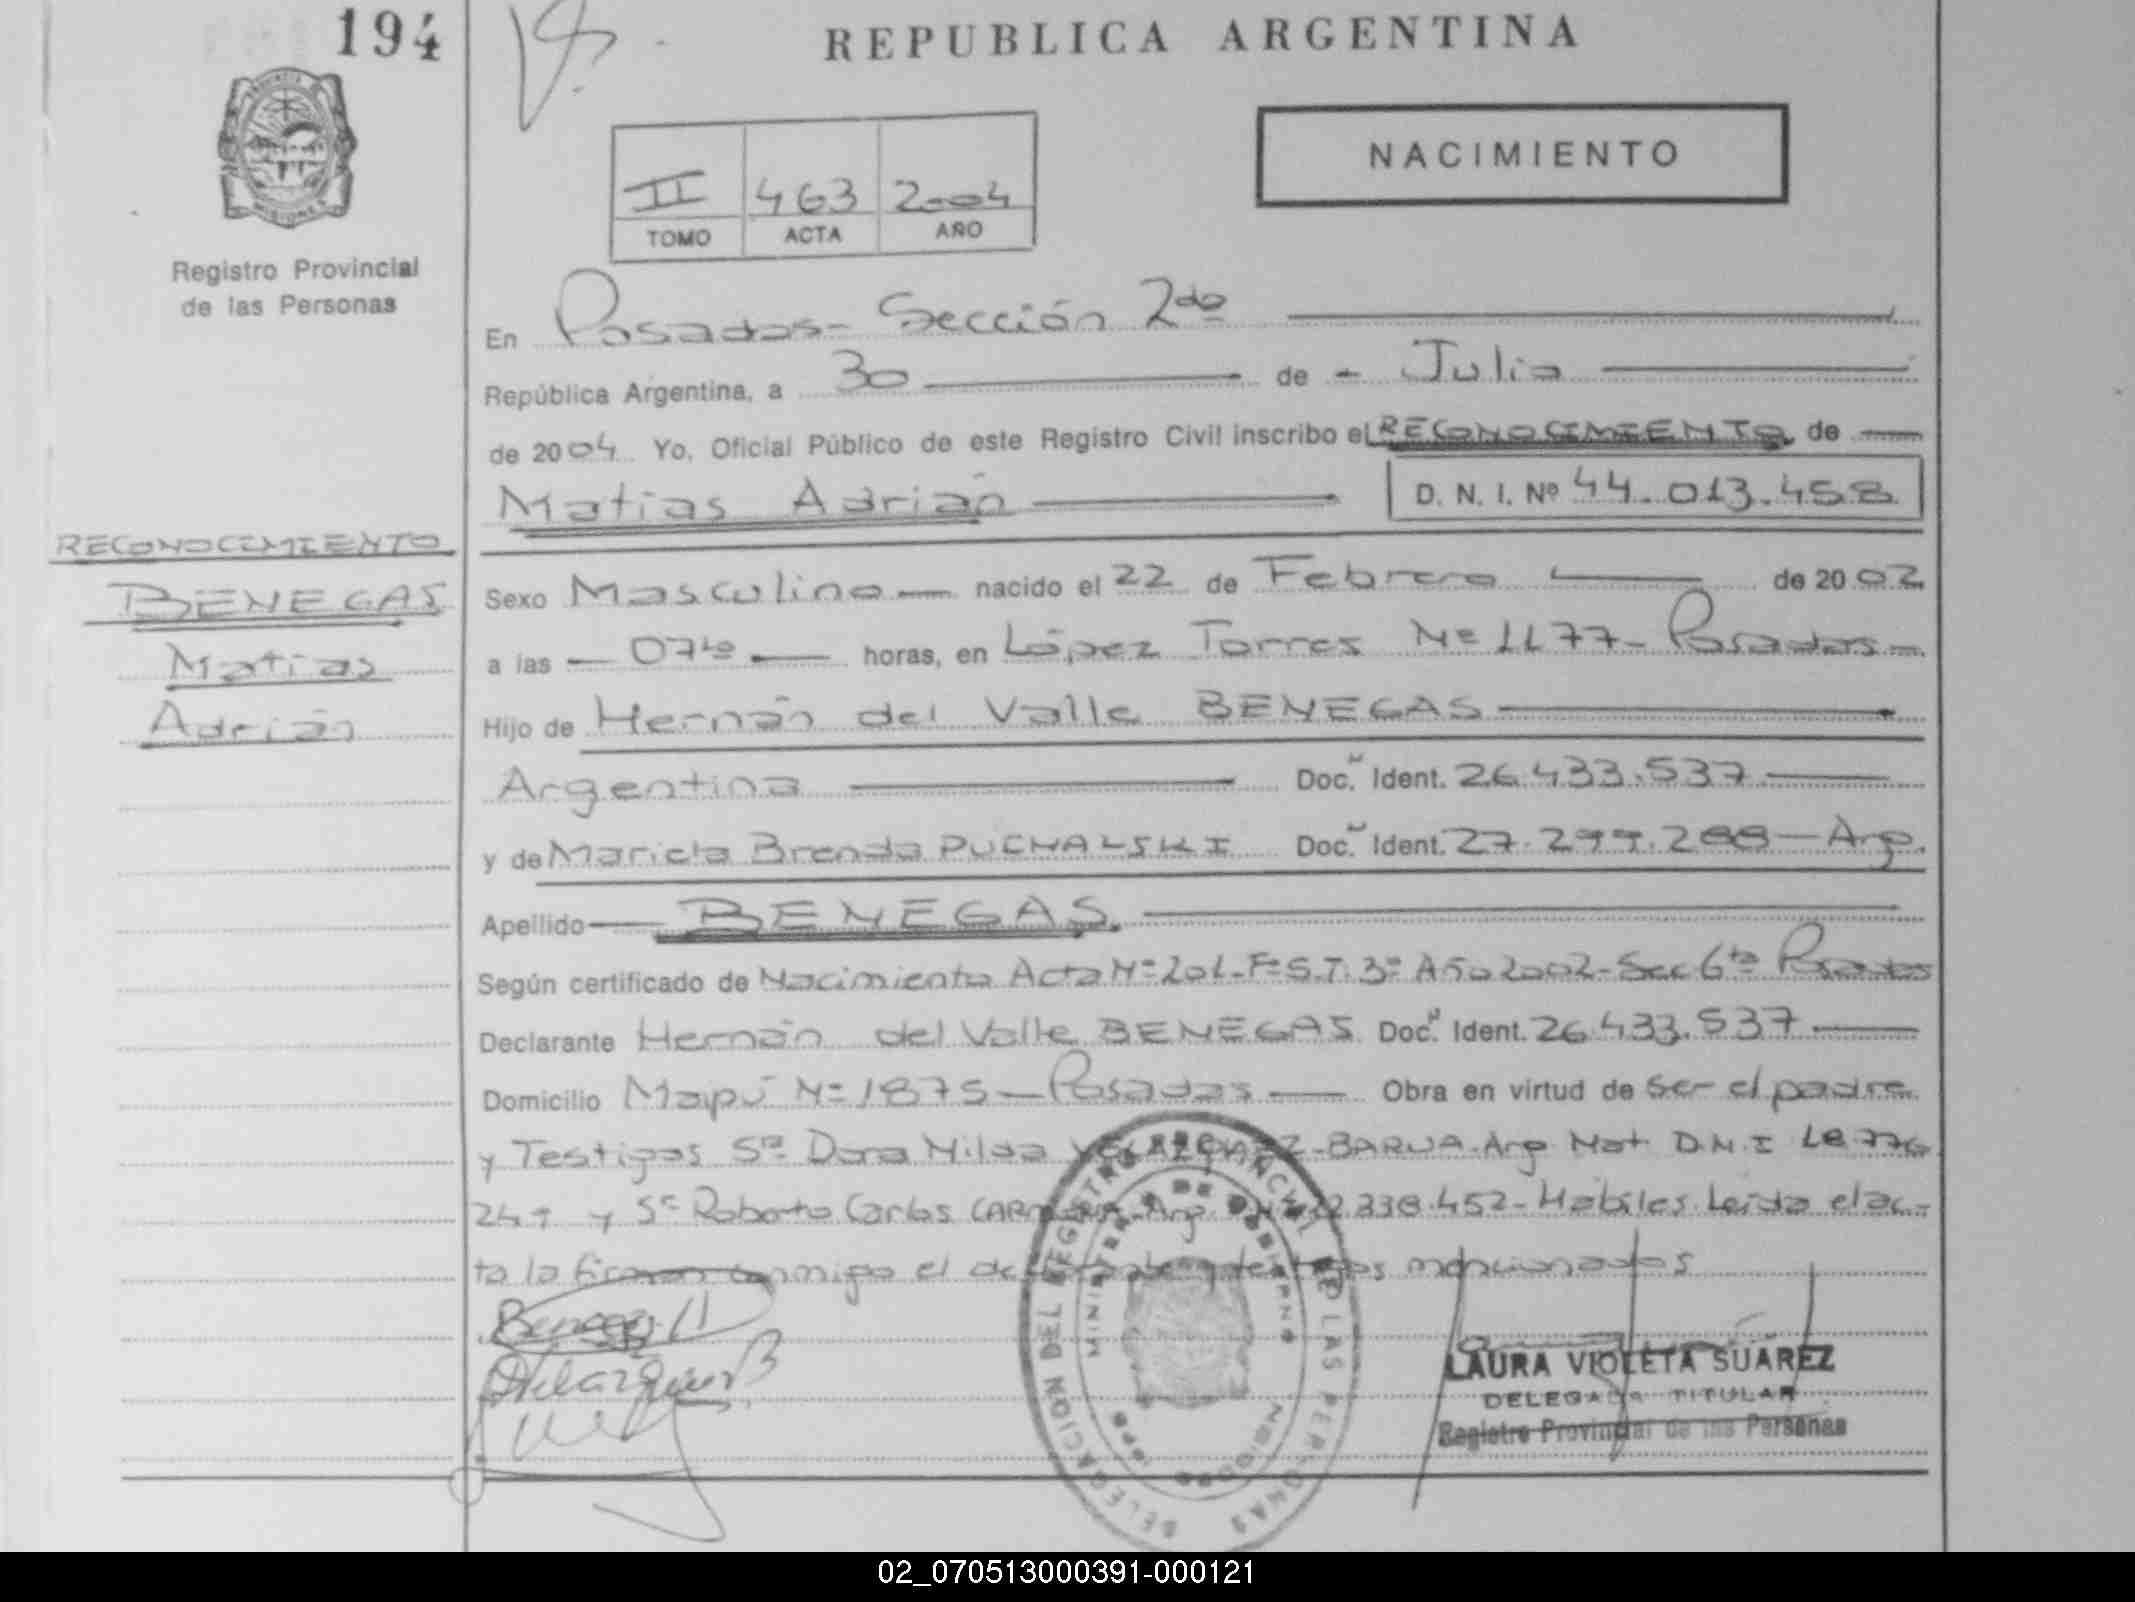 194
REPUBLICA ARGENTINA
NACIMIENTO
II 463 2004
TOMO ACTA AÑO
Registro Provincial
de las Personas
En Posadas- Sección 2da
República Argentina, a 30 de - Julio
de 2004. Yo, Oficial Público de este Registro Civil inscribo el RECONOCIMIENTO de
Matias Adrián D. N. I. Nº 44.013.458
RECONOCIMIENTO
BENEGAS
Matias
Adrián
Sexo Masculino nacido el 22 de Febrero de 2002
a las 07 horas, en López Torres Nº 1177- Posadas-
Hijo de Hernán del Valle BENEGAS
Argentina Doc. Ident. 26.433.537
y de Brenda PUCHALSKI Doc. Ident. 27.299.288- Arg.
Apellido BENEGAS.
Según certificado de Nacimiento Acta Nº 201-Fº5.T.3º Año 2002- Sec 6ta Posadas
Declarante Hernán del Valle BENEGAS Doc. Ident. 26.433.537
Domicilio Maipú Nº 1875- Posadas Obra en virtud de ser el padre
y Testigos Sra Dora Nilda -BARUA-Arg Nat D.N.I
y Sr Roberto Carlos Arg .452- Hábiles. Leida el ac-
ta la firman conmigo el mencionados
Benegas H
LAURA VIOLETA SUAREZ
DELEGADA TITULAR
Registro Provincial de las Personas
DELEGACION DEL REGISTRO PROVINCIAL DE LAS PERSONAS
MINISTERIO DE GOBIERNO
02_070513000391-000121